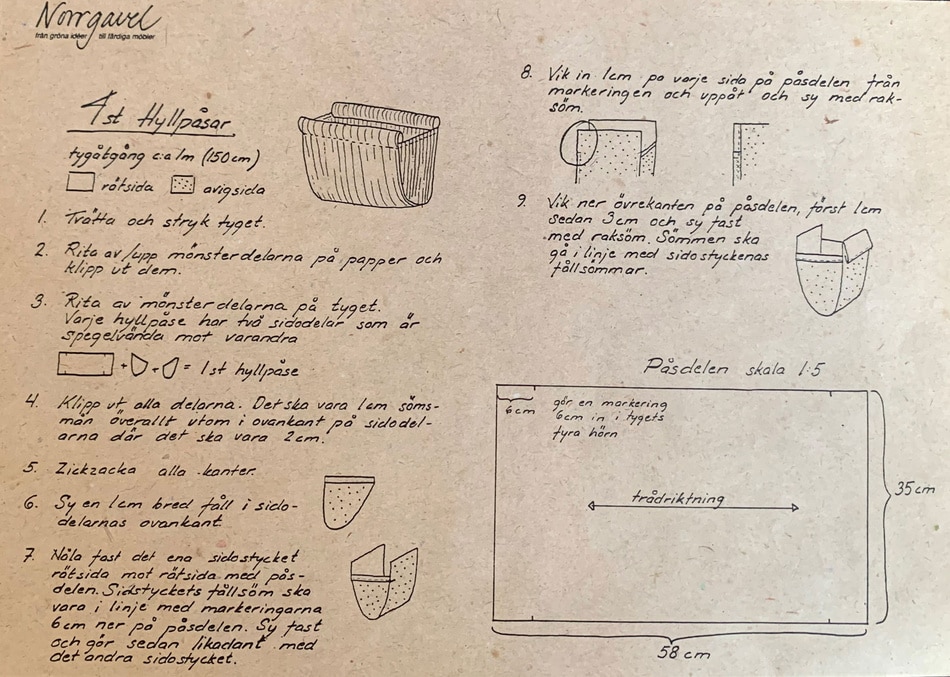 Norrgavel
från gröna idéer till färdiga möbler
4st Hyllpåsar
tygåtgång c:a 1m (150cm)
rätsida avigsida
1. Tvätta och stryk tyget.
2. Rita av/upp mönsterdelarna på papper och
klipp ut dem.
3. Rita av mönsterdelarna på tyget.
Varje hyllpåse har två sidodelar som är
spegelvända mot varandra
+ + = 1st hyllpåse
4. Klipp ut alla delarna. Det ska vara 1cm söms-
mån överallt utom i ovankant på sidodel-
arna där det ska vara 2cm.
5. Zickzacka alla kanter.
6. Sy en 1cm bred fåll i sido-
delarnas ovankant.
7. Nåla fast det ena sidostycket
rätsida mot rätsida med pås-
delen. Sidstyckets fållsöm ska
vara i linje med markeringarna
6cm ner på påsdelen. Sy fast
och gör sedan likadant med
det andra sidostycket.
8. Vik in 1cm på varje sida på påsdelen från
markeringen och uppåt och sy med rak-
söm.
9. Vik ner övrekanten på påsdelen, först 1cm
sedan 3cm och sy fast
med raksöm. Sömmen ska
gå i linje med sidostyckenas
fållsömmar.
Påsdelen skala 1:5
6cm
gör en markering
6cm in i tygets
fyra hörn
trådriktning
35cm
58cm